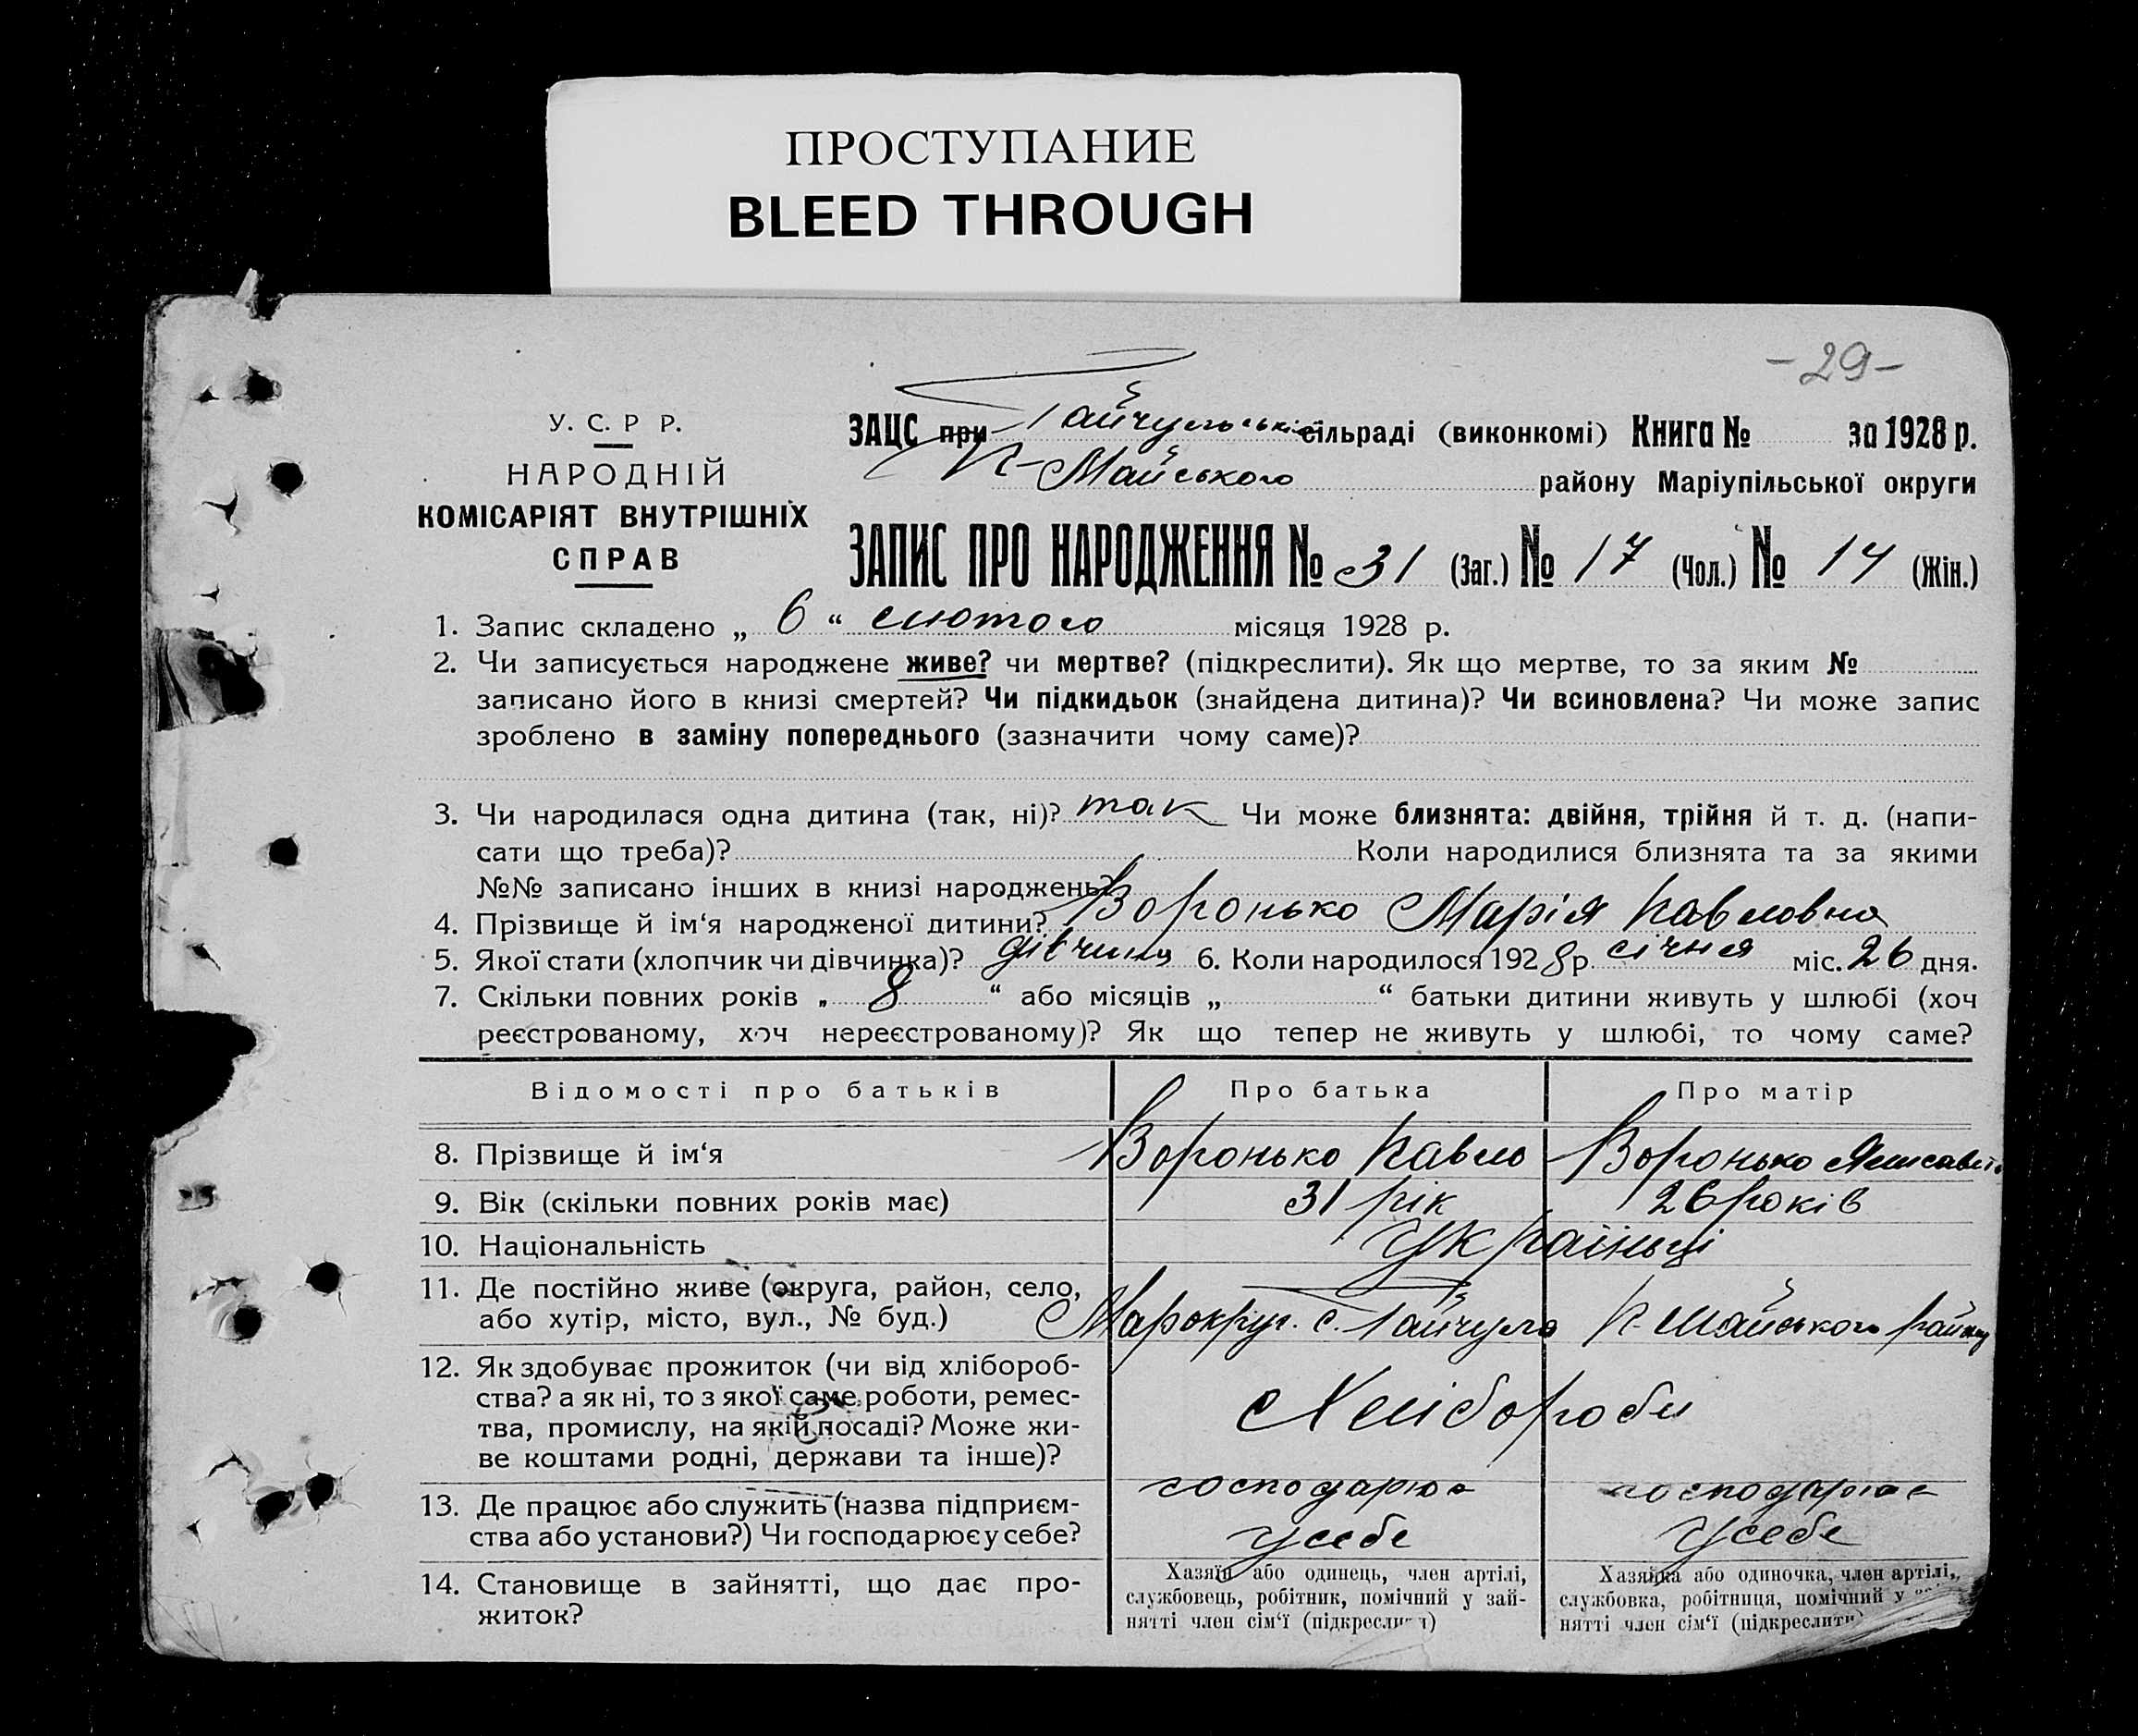 ПРОСТУПАНИЕ
BLEED THROUGH
-29-
У. С. Р Р.
НАРОДНІЙ
КОМІСАРІЯТ ВНУТРІШНІХ
СПРАВ
ЗАЦС при Гайчульській сільраді (виконкомі) Книга № за 1928 р.
К-Майського району Маріупільської округи
ЗАПИС ПРО НАРОДЖЕННЯ № 31 (Заг.) № 17 (Чол.) № 14 (Жін.)
1. Запис складено „ 6 “ лютого місяця 1928 р.
2. Чи записується народжене живе? чи мертве? (підкреслити). Як що мертве, то за яким №
записано його в книзі смертей? Чи підкидьок (знайдена дитина)? Чи всиновлена? Чи може запис
зроблено в заміну попереднього (зазначити чому саме)?
3. Чи народилася одна дитина (так, ні)? так Чи може близнята: двійня, трійня й т. д. (напи-
сати що треба)? Коли народилися близнята та за якими
№№ записано інших в книзі народжень?
4. Прізвище й ім‘я народженої дитини? Воронько Марія Павловна
5. Якої стати (хлопчик чи дівчинка)? дівчина 6. Коли народилося 1928 р. січня міс. 26 дня.
7. Скільки повних років „ 8 “ або місяців „ “ батьки дитини живуть у шлюбі (хоч
реєстрованому, хоч нереєстрованому)? Як що тепер не живуть у шлюбі, то чому саме?
Відомості про батьків Про батька Про матір
8. Прізвище й ім‘я Воронько Павло Воронько
9. Вік (скільки повних років має) 31 рік 26 років
10. Національність Українці
11. Де постійно живе (округа, район, село,
або хутір, місто, вул., № буд.) Марокруг. с. Гайчула К-Майського району
12. Як здобуває прожиток (чи від хлібороб-
ства? а як ні, то з якої саме роботи, ремес-
тва, промислу, на якій посаді? Може жи-
ве коштами родні, держави та інше)?
Хлібороби
13. Де працює або служить (назва підприєм-
ства або установи?) Чи господарює у себе?
господарює господарює
у себе у себе
14. Становище в зайнятті, що дає про-
житок?
Хазяїн або одинець, член артілі,
службовець, робітник, помічний у зай-
нятті член сім‘ї (підкреслити)
Хазяйка або одиночка, член артілі,
службовка, робітниця, помічний у
нятті член сім‘ї (підкреслити)